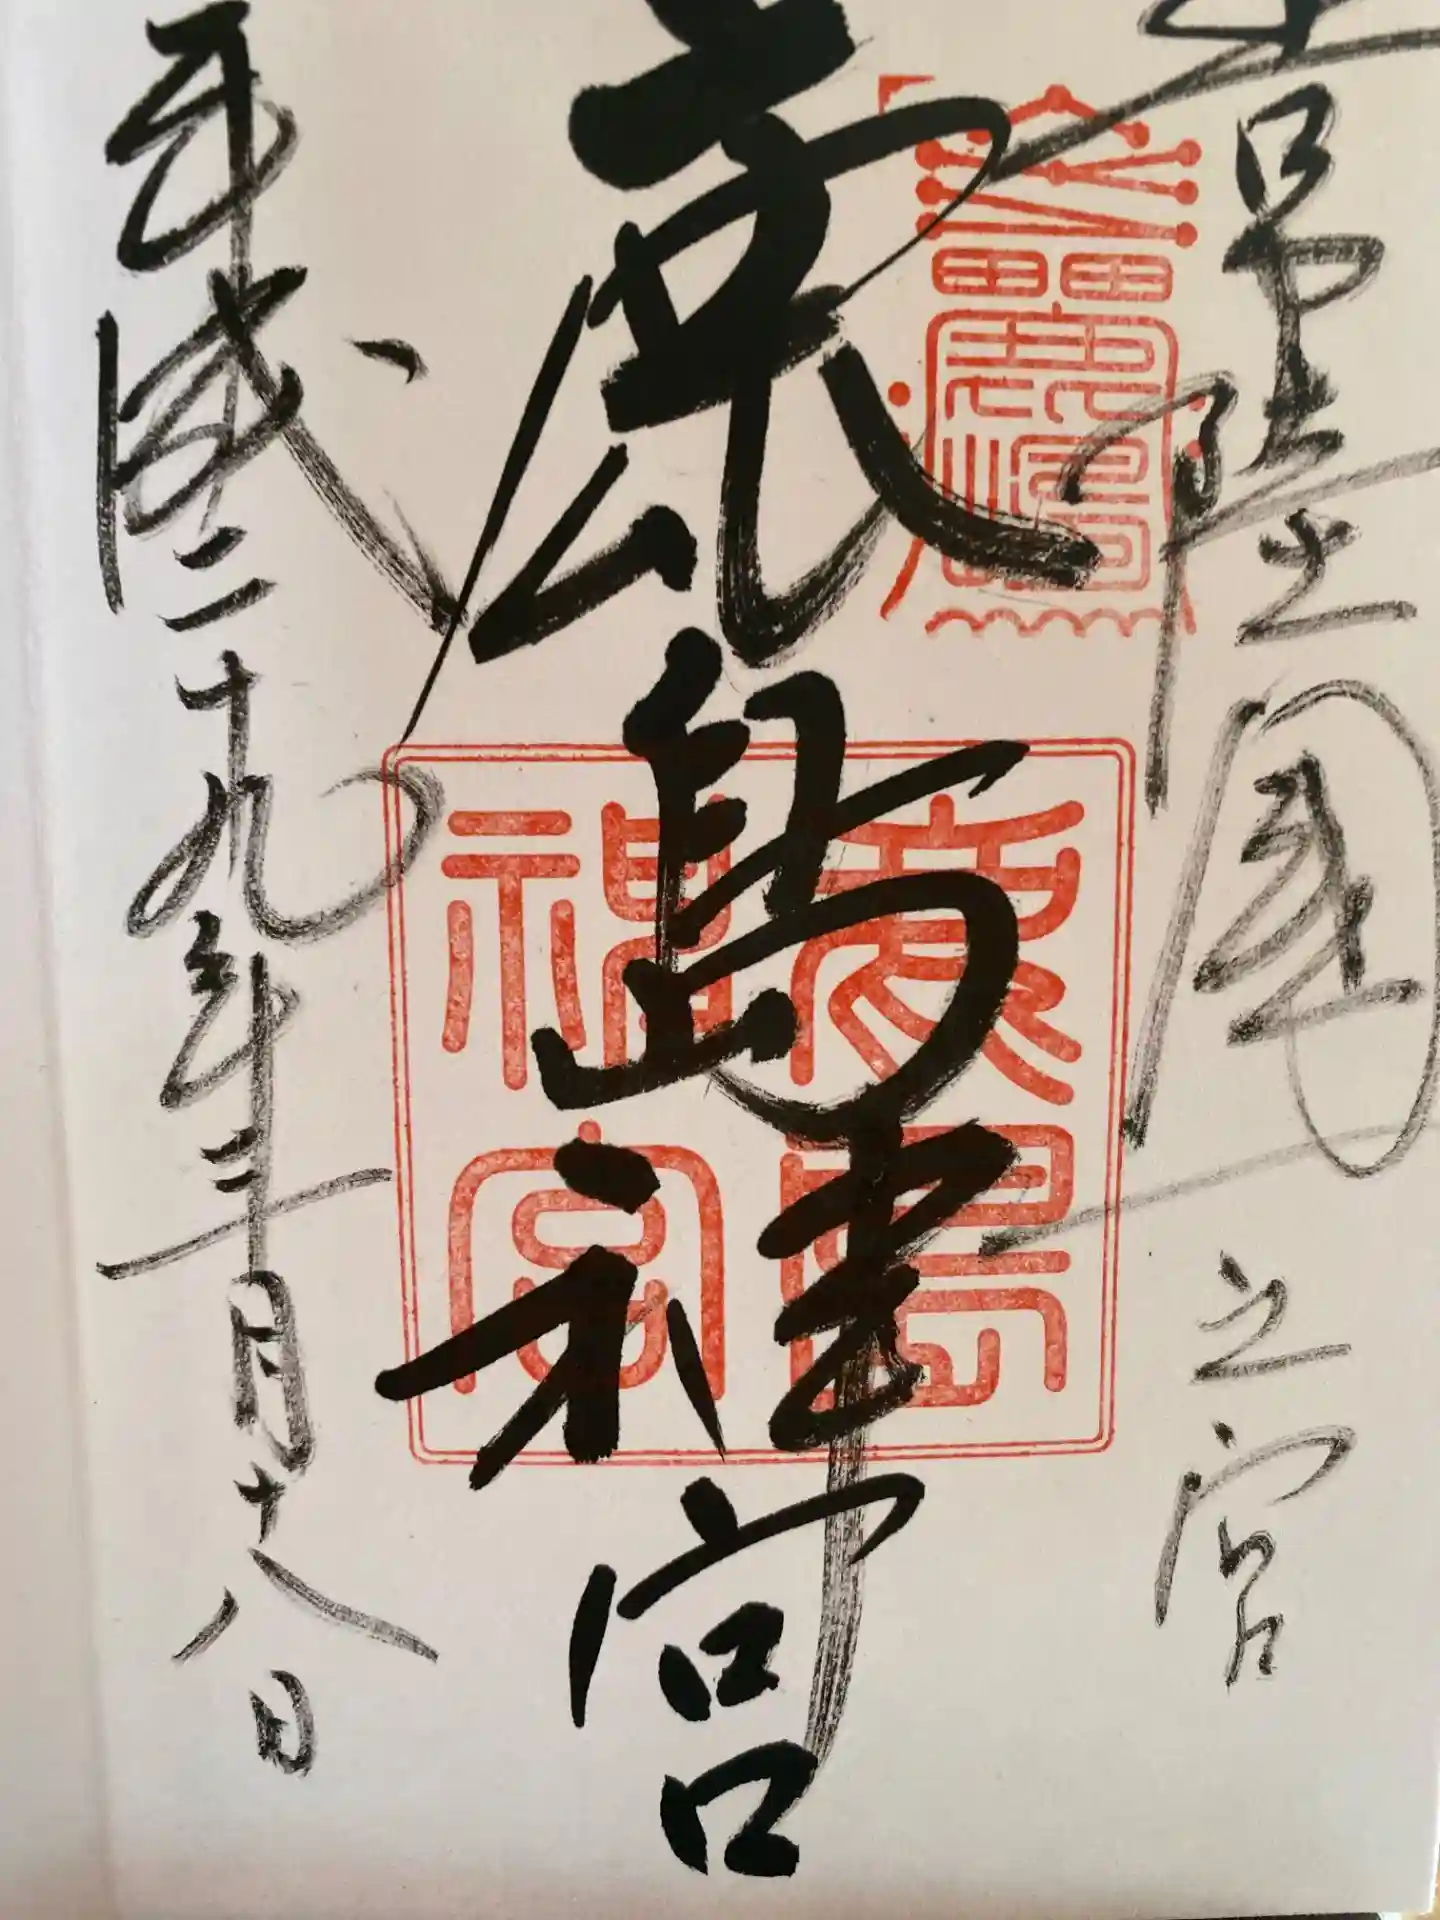 常陸国一之宮
鹿島神宮
鹿島神宮
平成二十九年二月十八日